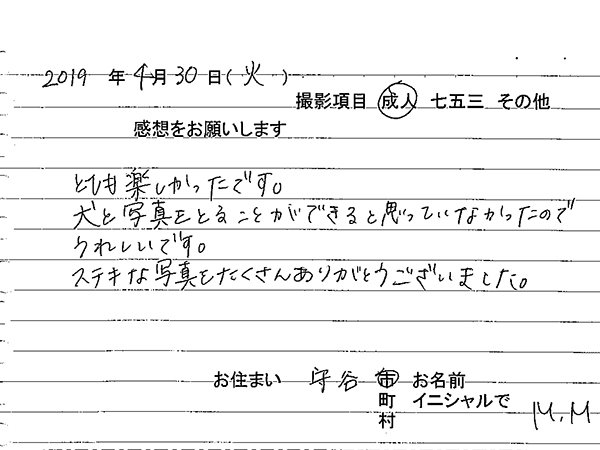 2019年4月30日(火)
撮影項目 成人 七五三 その他
感想をお願いします
とても楽しかったです。
犬と写真をとることができると思っていなかったので
うれしいです。
ステキな写真をたくさんありがとうございました。
お住まい 守谷 市 お名前
町 イニシャルで
村 M.M